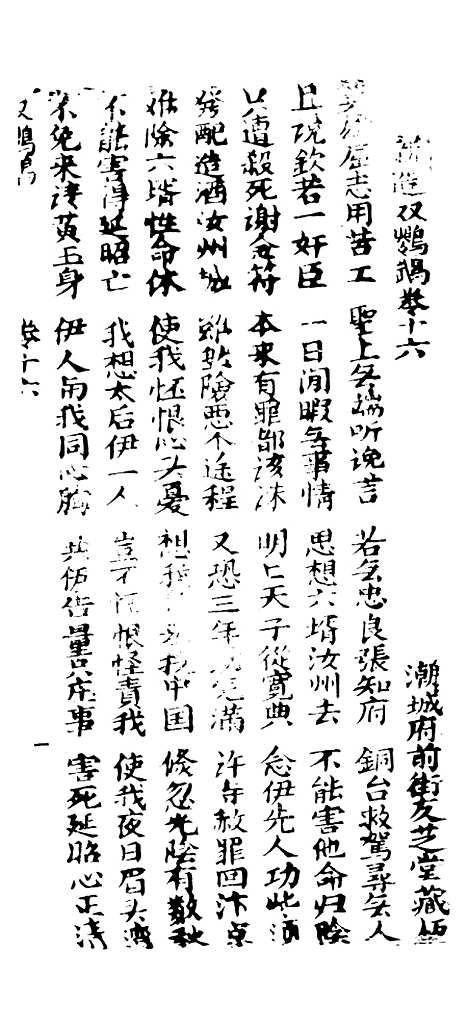 新造双鹦鹉卷十六 潮城府前街友芝堂藏板
屈志用苦工 聖上無端听谗言 若無忠良張知府 銅台救駕尋無人
且説欽若一奸臣 一日閒暇無事情 思想六壻汝州去 不能害他命归陰
遭殺死謝金符 本来有罪部該 明亡天子從寬典 念伊先人功些須
發配造酒汝州城 險惡个途程 又恐三年完滿 許年赦罪回汴京
除六壻性命休 使我怪恨心头憂 想我中国 倏忽光陰有数秋
不能害得延昭亡 我想太后伊一人 豈不恨怪責我 使我夜日眉头
不免来請黄玉身 伊人甪我同心胸 共伊告量只庄事 害死延昭心正清
双鹦鹉 卷十六 一